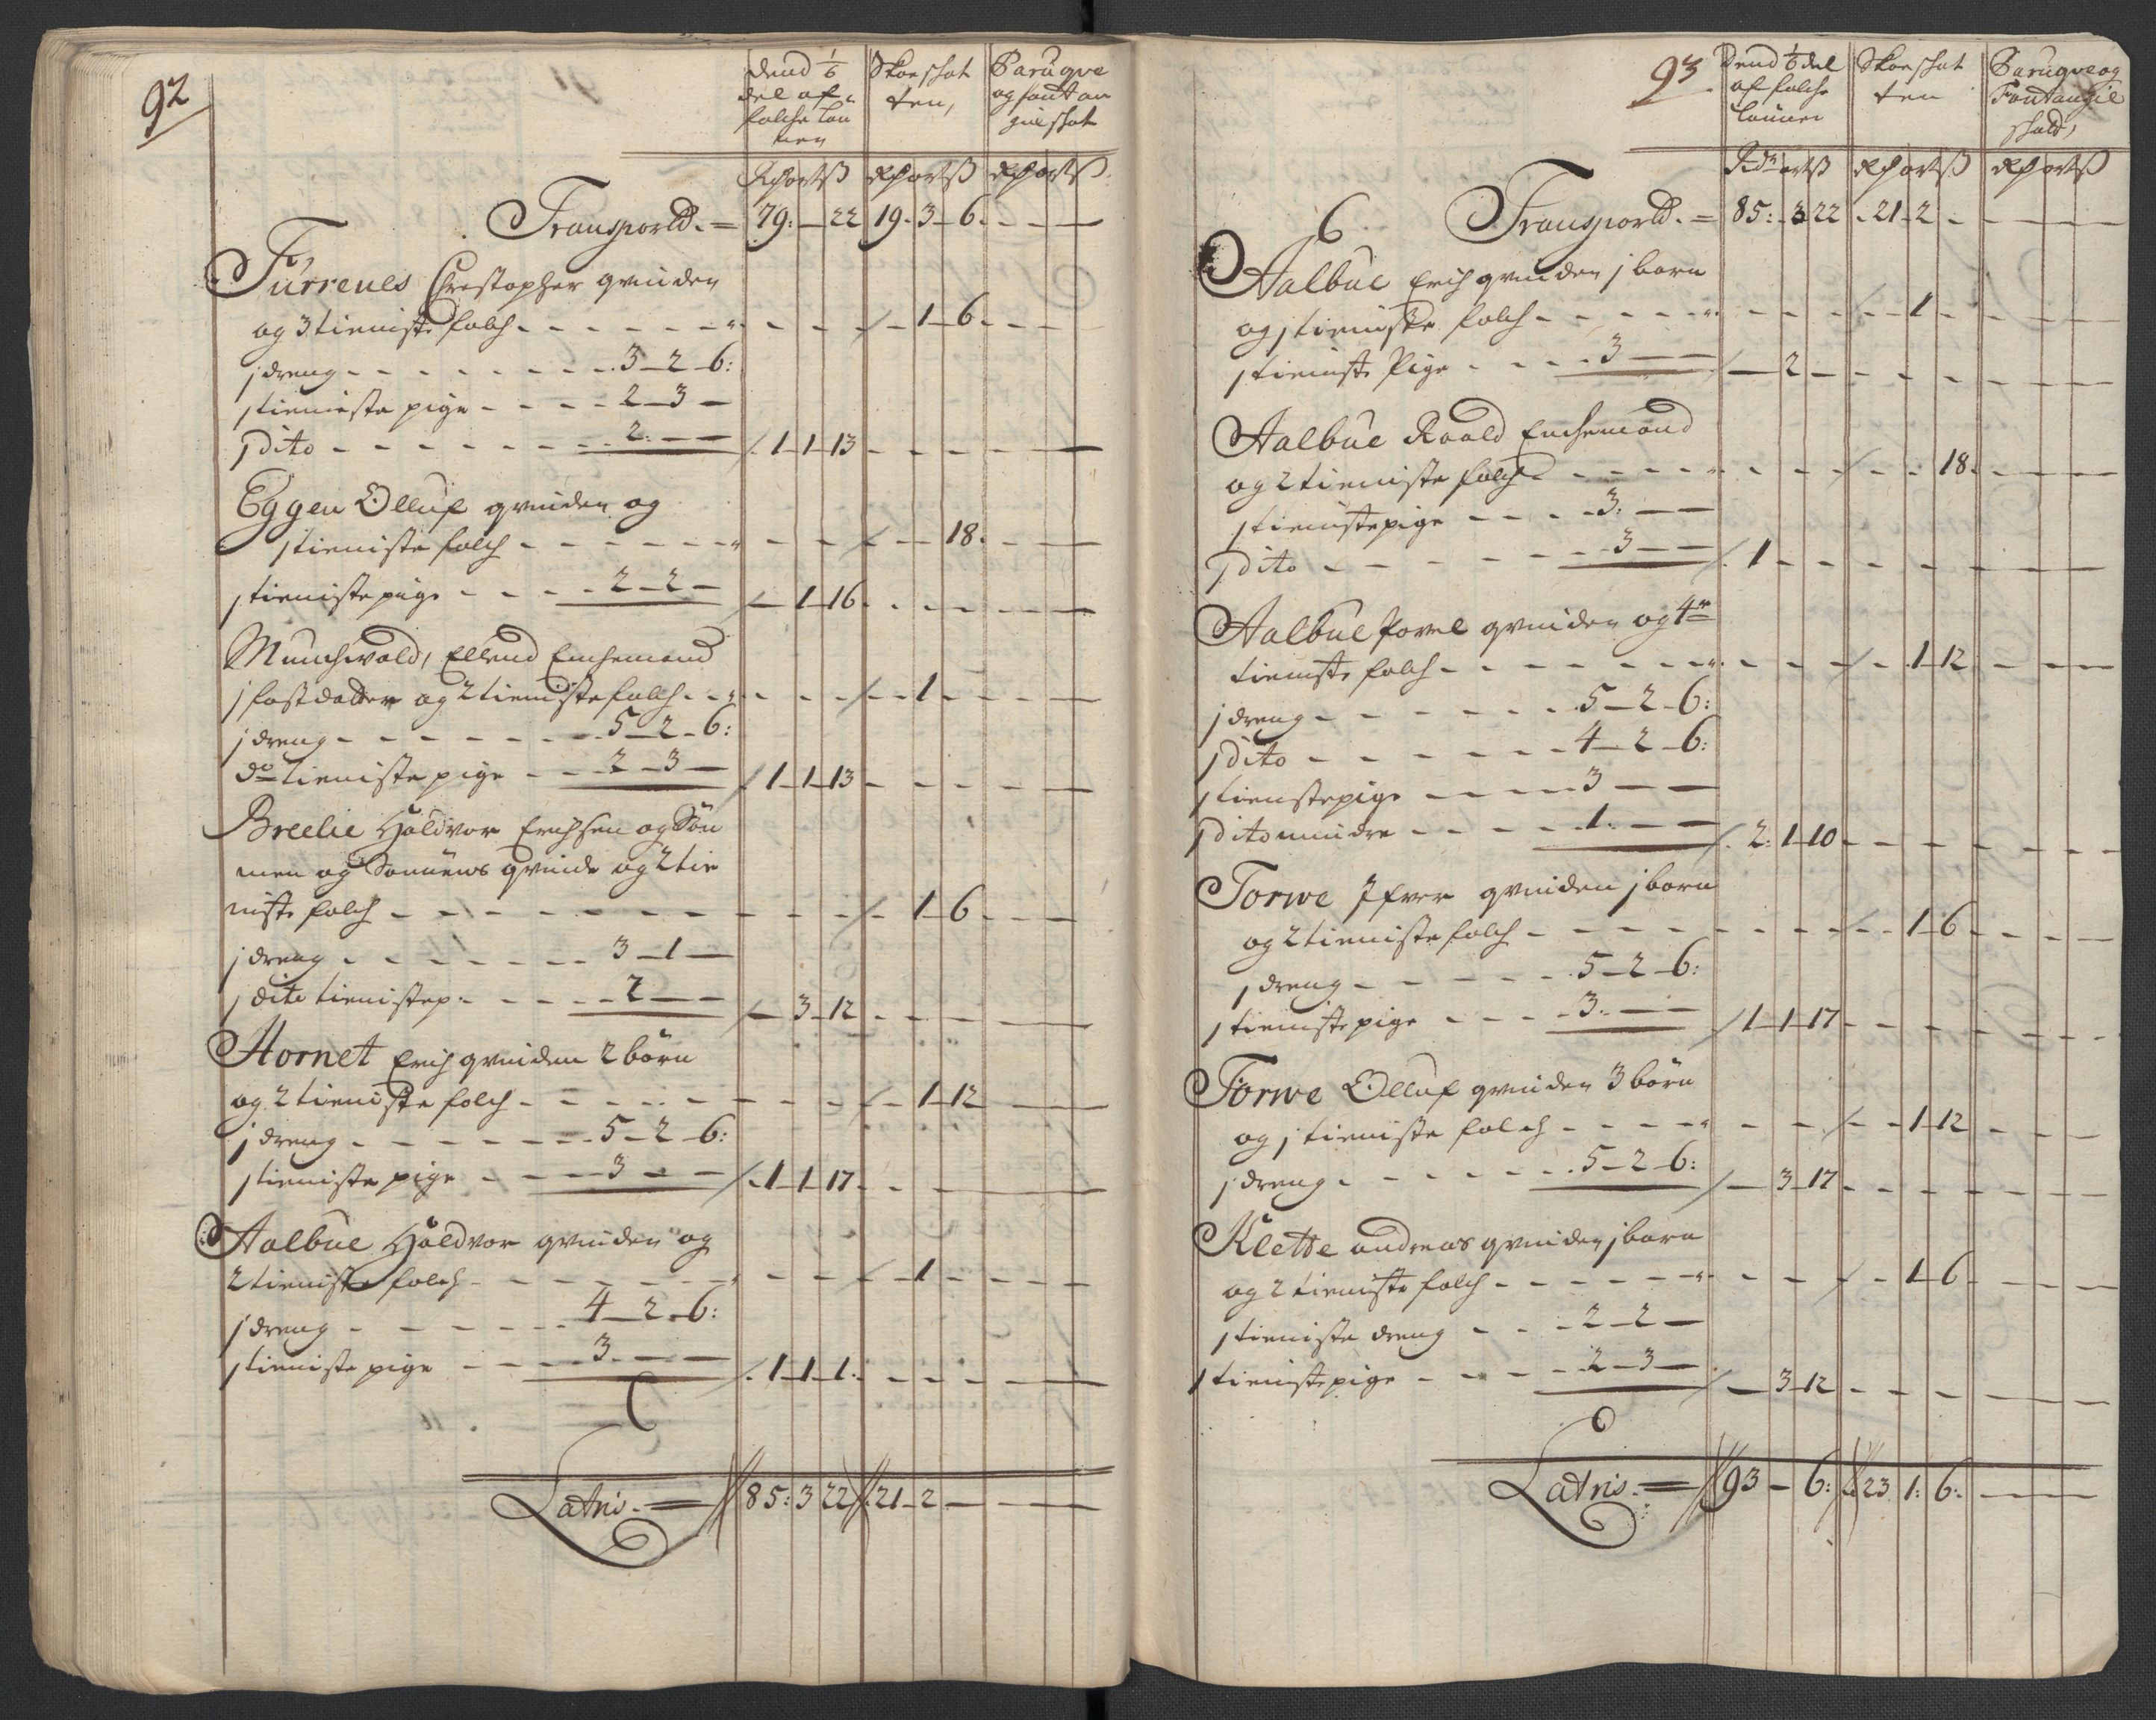 92
Dend 1/6 | Skoeschat | Paruqve
del af | ten, | og fontan
folche løn | | giel schat
nen
Rd ort ß | Rd ort ß | Rd ort ß
Transporld. = 79: — 22 | 19 - 3 - 6 -
Furrenes Christopher qvinden
og 3 tieniste folch - - - 1 - 6 -
j dreng - - - 3 - 2 - 6:
j tieniste pige - - - 2 - 3 -
j dito - - - 2: - - / 1 - 1 - 13
Eggen Olluf qvinden og
j tieniste folch - - - 18 -
j tieniste pige - - - 2 - 2 - / - 1 - 16
Munchvold, Ellend Enchemand
j fostdatter og 2 tieniste folch - - - 1 -
j dreng - - - 5 - 2 - 6:
do tieniste pige - - 2 - 3 - / 1 - 1 - 13
Breelie Haldvor Erichsen og Søn
nen og Sønnens qvinde og 2 tie
niste folch - - - 1 - 6 -
j dreng - - - 3 - 1 -
j dito tienistep: - - - 2 - - / - 3 - 12
Hornet Erich qvinden 2 børn
og 2 tieniste folch - - - 1 - 12
j dreng - - - 5 - 2 - 6:
j tieniste pige - - - 3 - - / 1 - 1 - 17
Aalbue Haldvor qvinden og
2 tieniste folch - - - 1 -
j dreng - - - 4 - 2 - 6:
j tieniste pige - - - 3 - - / 1 - 1 - 1
Latris = 85: 3 22 | 21 - 2 -
93
Dend 1/6 del | Skoeschat | Paruqve og
af folche | ten | Fontangie
lønnen | | schald,
Rdr ort ß | Rd ort ß | Rd ort ß
6 Transporld. = 85: 3 22 | 21 - 2 -
Aalbue Erich qvinden j barn
og j tieniste folch - - - 1 -
j tieniste Pige - - - 3 - - / - 2 -
Aalbue Roald Enchemand
og 2 tieniste folch - - - 18 -
j tieniste pige - - - 3: - -
j dito - - - 3 - - / 1 - -
Aalbue Povel qvinden og 4re
tieniste folch - - - 1 - 12
j dreng - - - 5 - 2 - 6:
j dito - - - 4 - 2 - 6:
j tienstepige - - - 3 - -
j dito mindre - - - 1: - - / 2: 1 - 10
Torwe Ifver qvinden j barn
og 2 tieniste folch - - - 1 - 6
j dreng - - - 5 - 2 - 6:
j tieniste pige - - - 3: - - / 1 - 1 - 17
Torwe Olluf qvinden 3 børn
og j tieniste folch - - - 1 - 12
j dreng - - - 5 - 2 - 6: / - 3 - 17
Klette andreas qvinden j barn
og 2 tieniste folch - - - 1 - 6
j tieniste dreng - - - 2 - 2 -
j tieniste pige - - - 2 - 3 - / - 3 - 12
Latris = 93 - 6: | 23 1: 6: